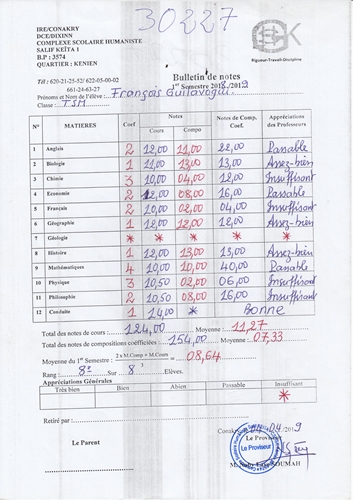 30227
IRE/CONAKRY
DCE/DIXINN
COMPLEXE SCOLAIRE HUMANISTE
SALIF KEÏTA 1
B.P : 3574
QUARTIER : KENIEN
Rigueur-Travail-Discipline
Tél : 620-21-25-52/ 622-05-00-02
661-24-63-27
Bulletin de notes
1er Semestre 2018/2019
Prénoms et Nom de l'élève : François Guilavogui
Classe : TSM
N° MATIERES Coef Notes Notes de Comp. Coef. Appréciations des Professeurs
Cours Compo
1 Anglais 2 12,00 11,00 22,00 Passable
2 Biologie 1 11,00 13,00 13,00 Assez-bien
3 Chimie 3 10,00 04,00 12,00 Insuffisant
4 Economie 2 12,00 08,00 16,00 Passable
5 Français 2 10,00 02,00 04,00 Insuffisant
6 Géographie 1 12,00 12,00 12,00 Assez-bien
7 Géologie * * * * *
8 Histoire 1 12,00 13,00 13,00 Assez-bien
9 Mathématiques 4 10,00 10,00 40,00 Passable
10 Physique 3 10,50 02,00 06,00 Insuffisant
11 Philosophie 2 10,50 08,00 16,00 Insuffisant
12 Conduite 1 14,00 * Bonne
Total des notes de cours : 124,00 Moyenne : 11,27
Total des notes de compositions coefficiées : 154,00 Moyenne : 07,33
Moyenne du 1er Semestre : 2 x M.Comp + M.Cours / 3 = 08,64
Rang : 8e Sur 8 Elèves.
Appréciations Générales
Très bien Bien Assez bien Passable Insuffisant
*
Retiré par :
Conakry 04/2019
Le Parent Le Proviseur
Le Proviseur
SOUMAH